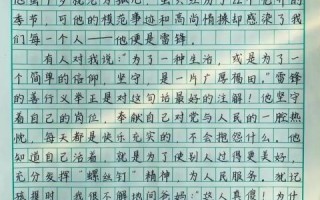 季节，可他的模范事迹和高尚情操却感染了我
们每一个人——他便是雷锋。
有人对我说："为了一种生活，或是为了一
个简单的信仰，坚守，是一片广厚福田。"雷锋
的善行义举正是对这句话最好的注解！他坚守
着自己的岗位，奉献自己对党与人民的一腔热
忱，每天都是快乐充实的，不会抱怨什么。他
知道自己活着，就是为了使别人过得更美好，
充分发挥"螺丝钉"精神，为人民服务。犹记
孩提时，我很不解地问爸妈："这人真傻！为什